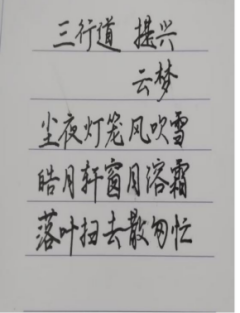 三行道 提兴
云梦
尘夜灯笼风吹雪
皓月轩窗月溶霜
落叶扫去散匆忙